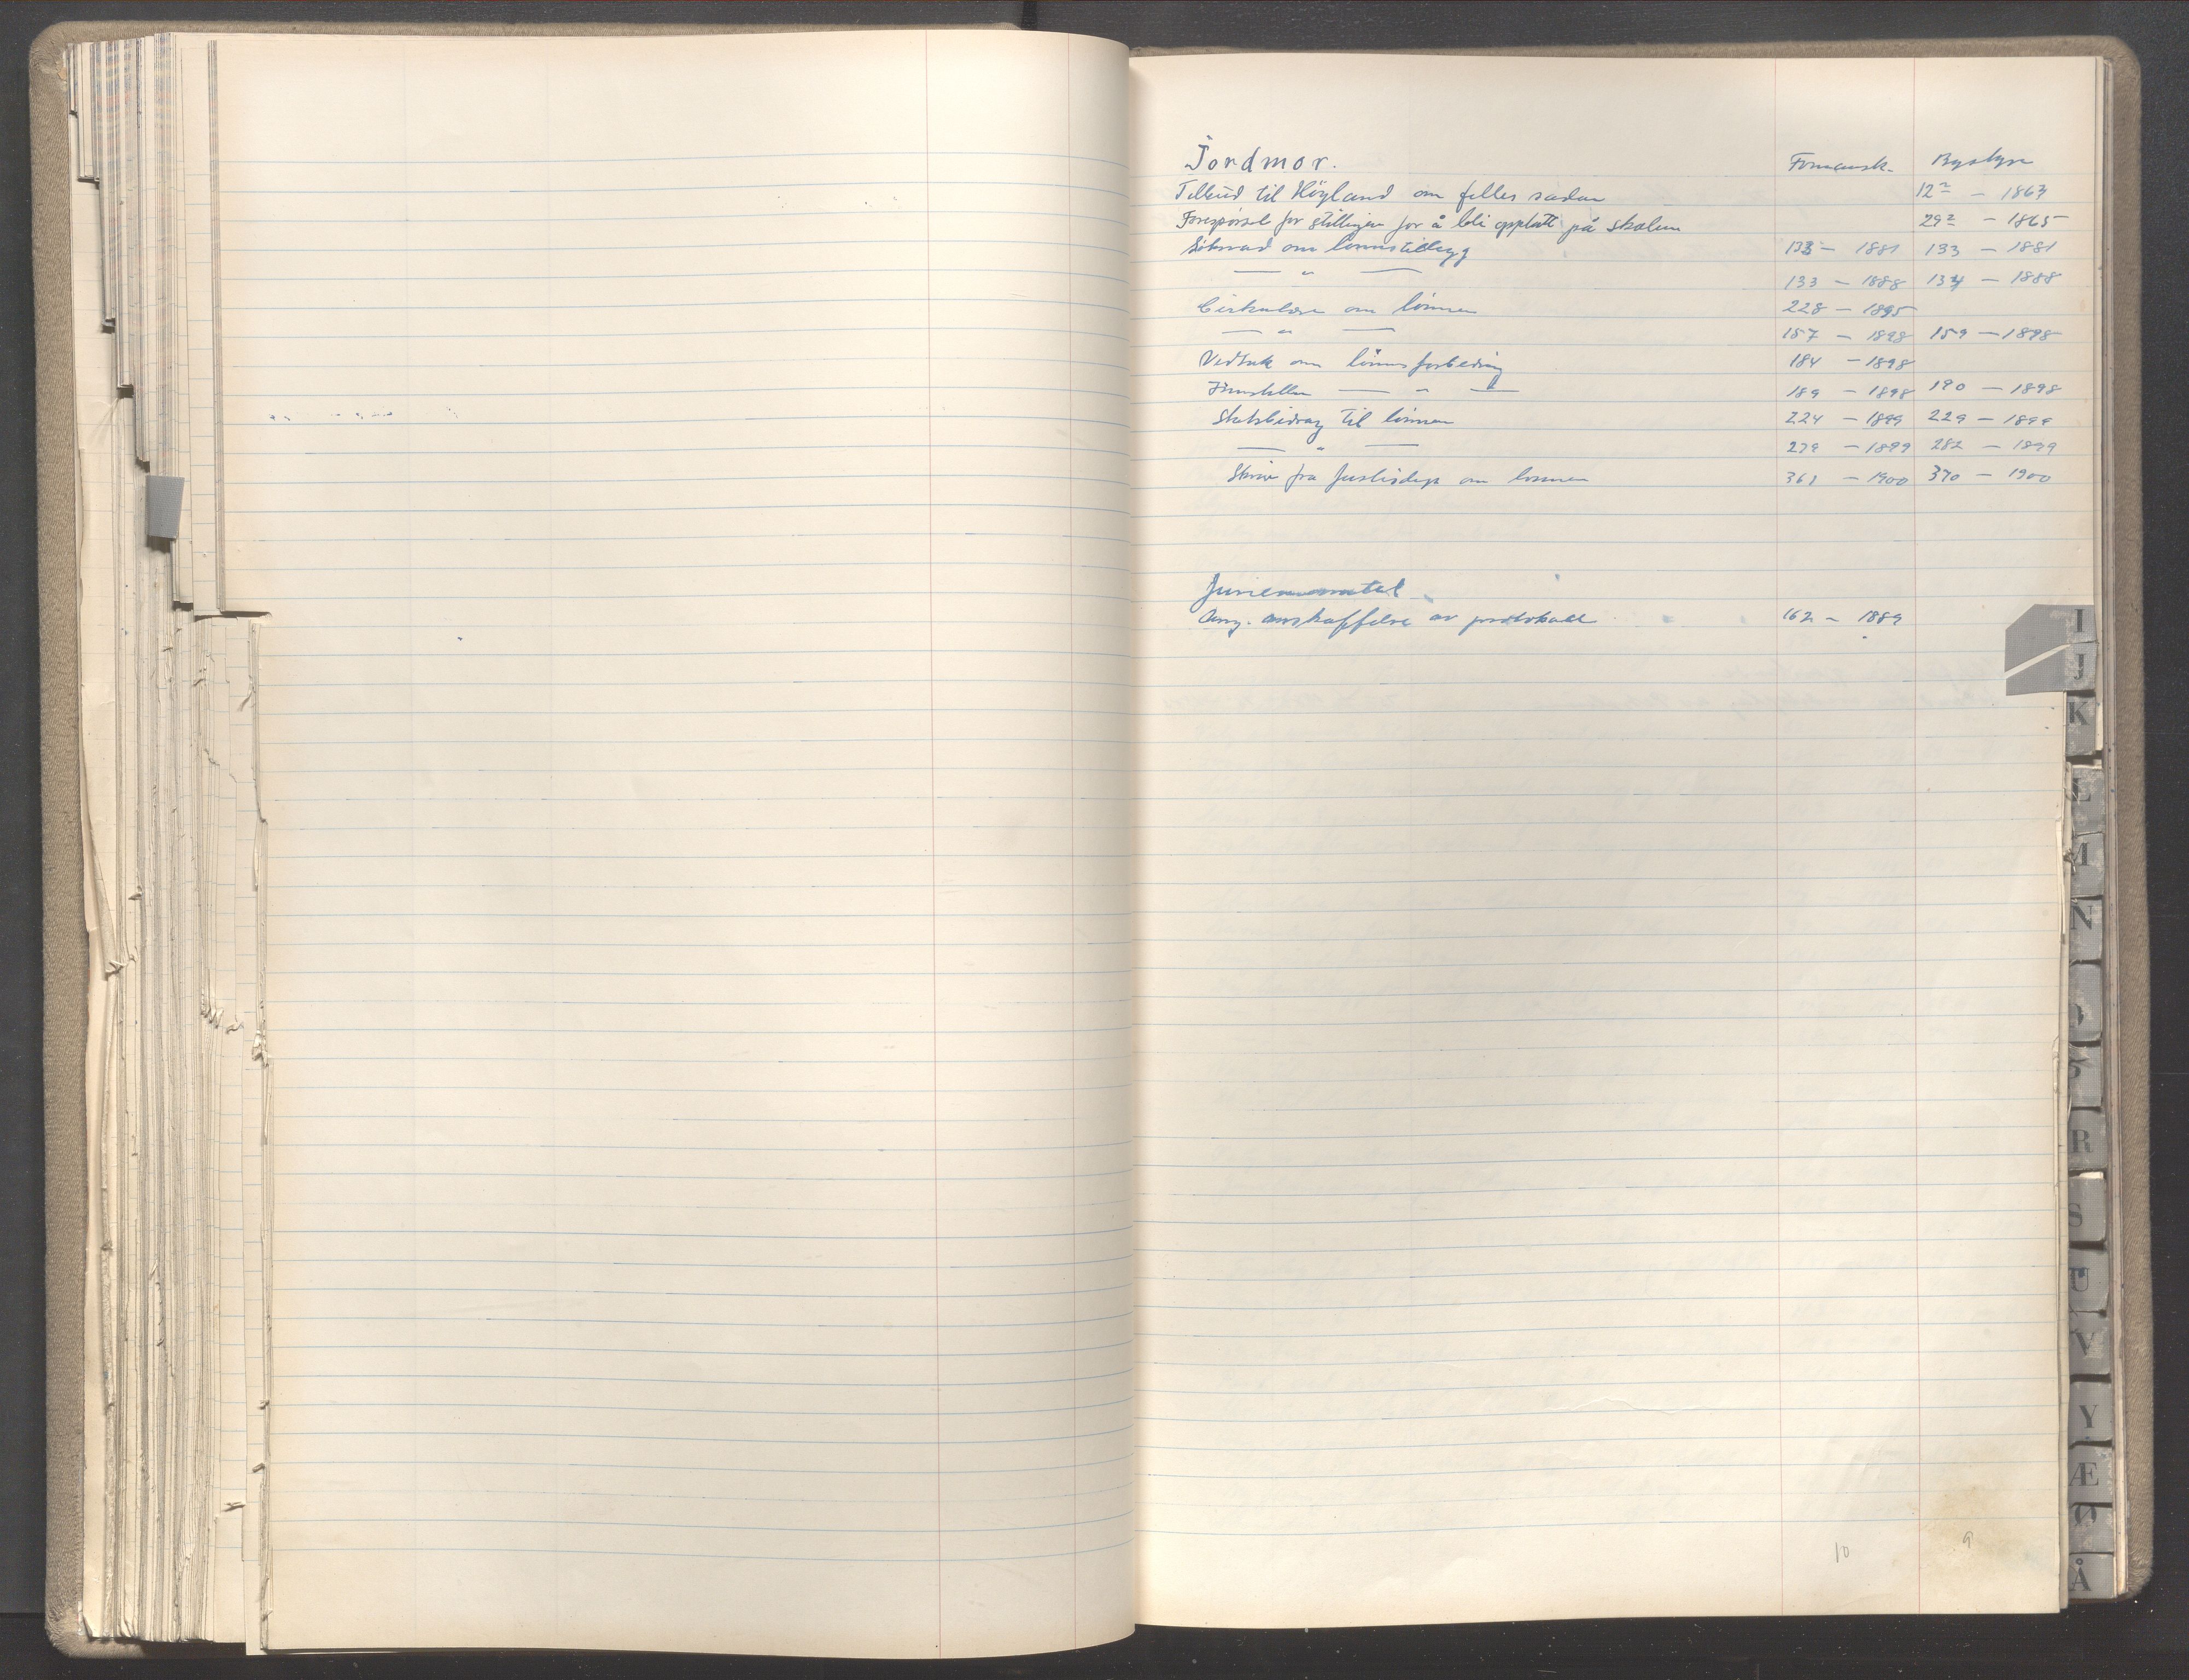 Jordmor. Formansk. Bystyre
Tilbud til Höyland om felles sadan 12 2 - 1863
Forespörsel for stillingen for å bli opptatt på skolen 29 2 - 1865
Söknad om lönnstillegg 133 - 1881 133 - 1881
— " — 133 - 1888 134 - 1888
Cirkulære om lönnen 228 - 1895
— " — 157 - 1898 159 - 1898
Vedtak om lönnsforbedring 184 - 1898
— " — 189 - 1898 190 - 1898
Statsbidrag til lönnen 224 - 1899 229 - 1899
— " — 279 - 1899 282 - 1899
Skriv fra Justisdep om lönnen 361 - 1900 370 - 1900
Ang. anskaffelse av protokoll 162 - 1889
10 9
I
J
K
L
M
N
R
S
U
V
Y
Æ
Ø
Å